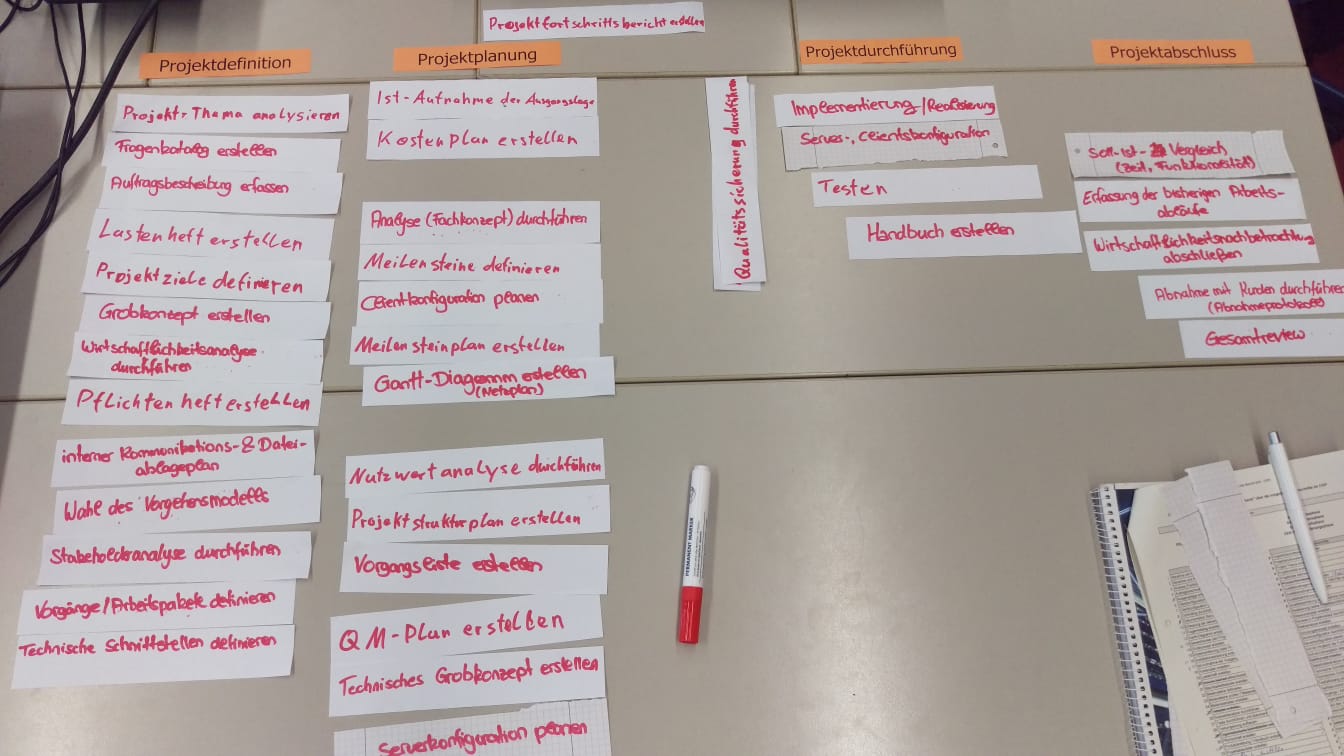 Projektfortschrittsbericht erstellen
Projektdefinition
Projekt-Thema analysieren
Fragenkatalog erstellen
Auftragsbescheibung erfassen
Lastenheft erstellen
Projektziele definieren
Grobkonzept erstellen
Wirtschaftlichkeitsanalyse
durchführen
Pflichtenheft erstellen
interner Kommunikations- & Datei-
ablageplan
Wahl des Vorgehensmodells
Stakeholderanalyse durchführen
Vorgänge/Arbeitspakete definieren
Technische Schnittstellen definieren
Projektplanung
Ist-Aufnahme der Ausgangslage
Kostenplan erstellen
Analyse (Fachkonzept) durchführen
Meilensteine definieren
Clientkonfiguration planen
Meilensteinplan erstellen
Gantt-Diagramm erstellen
(Netzplan)
Nutzwertanalyse durchführen
Projektstrukturplan erstellen
Vorgangsliste erstellen
QM-Plan erstellen
Technisches Grobkonzept erstellen
Serverkonfiguration planen
Qualitätssicherung durchführen
Projektdurchführung
Implementierung/Realisierung
Server-, Clientskonfiguration
Testen
Handbuch erstellen
Projektabschluss
Soll-Ist- Vergleich
(Zeit, Funktionalität)
Erfassung der bisherigen Arbeits-
abläufe
Wirtschaftlichkeitsnachbetrachtung
abschließen
Abnahme mit Kunden durchführen
(Abnahmeprotokoll)
Gesamtreview
PERMANENT MARKER